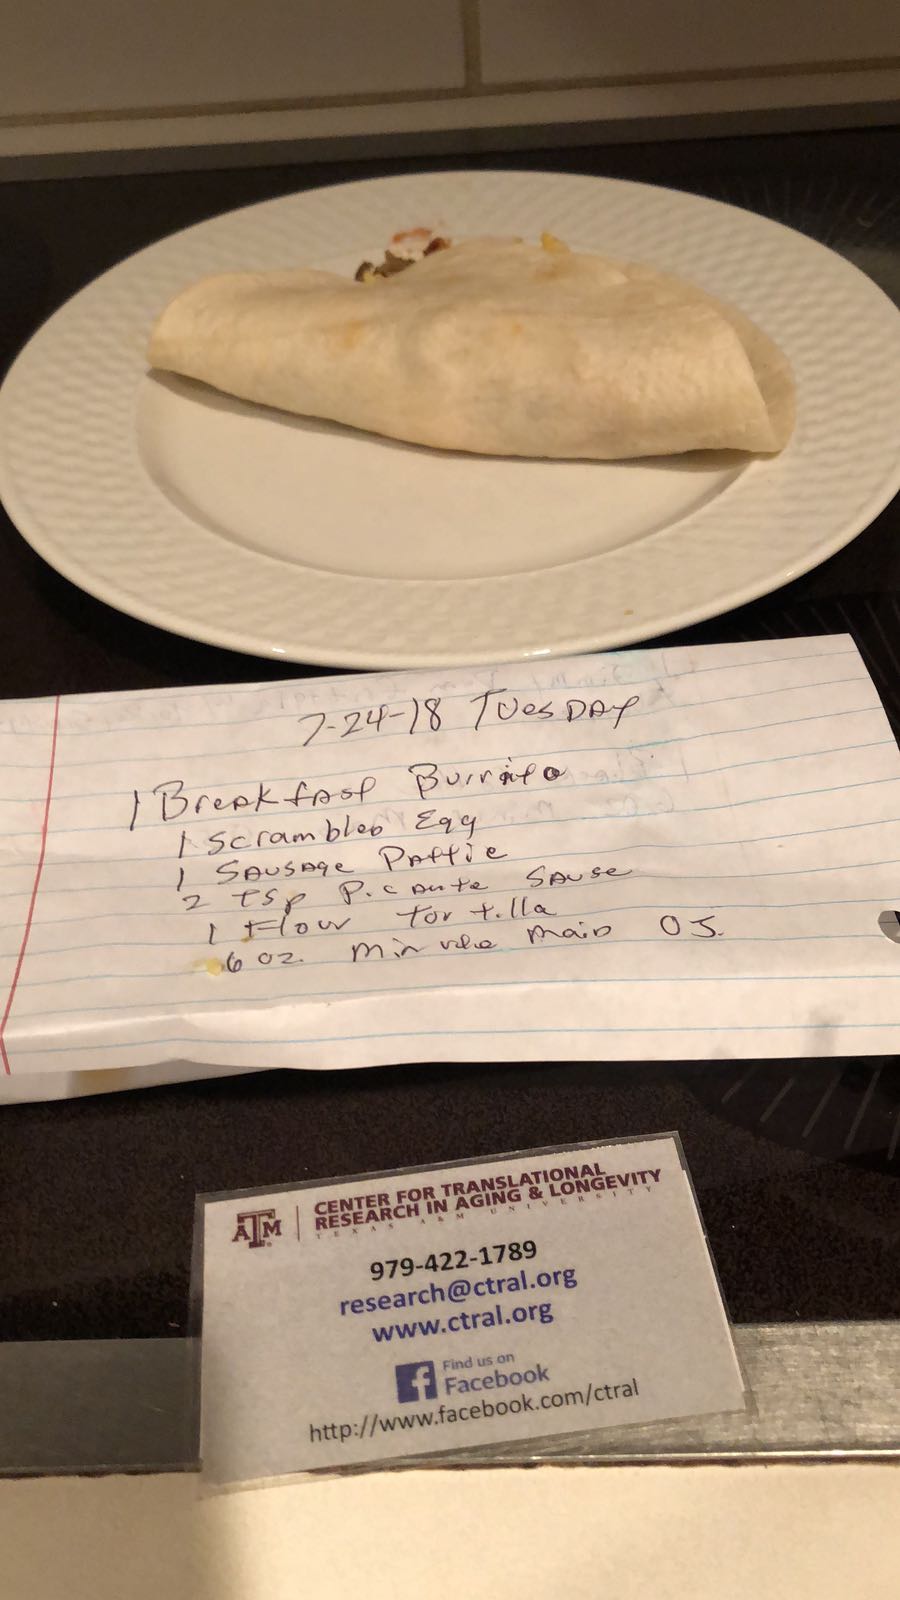 7-24-18 TUESDAY
1 Breakfast Burrito
1 Scrambled Egg
1 SAUSAge PATTie
2 tsp PicAnte SAUSe
1 Flour Tortilla
6 oz. Minute Maid OJ.
ATM
CENTER FOR TRANSLATIONAL
RESEARCH IN AGING & LONGEVITY
TEXAS A&M UNIVERSITY
979-422-1789
research@ctral.org
www.ctral.org
f Find us on
Facebook
http://www.facebook.com/ctral